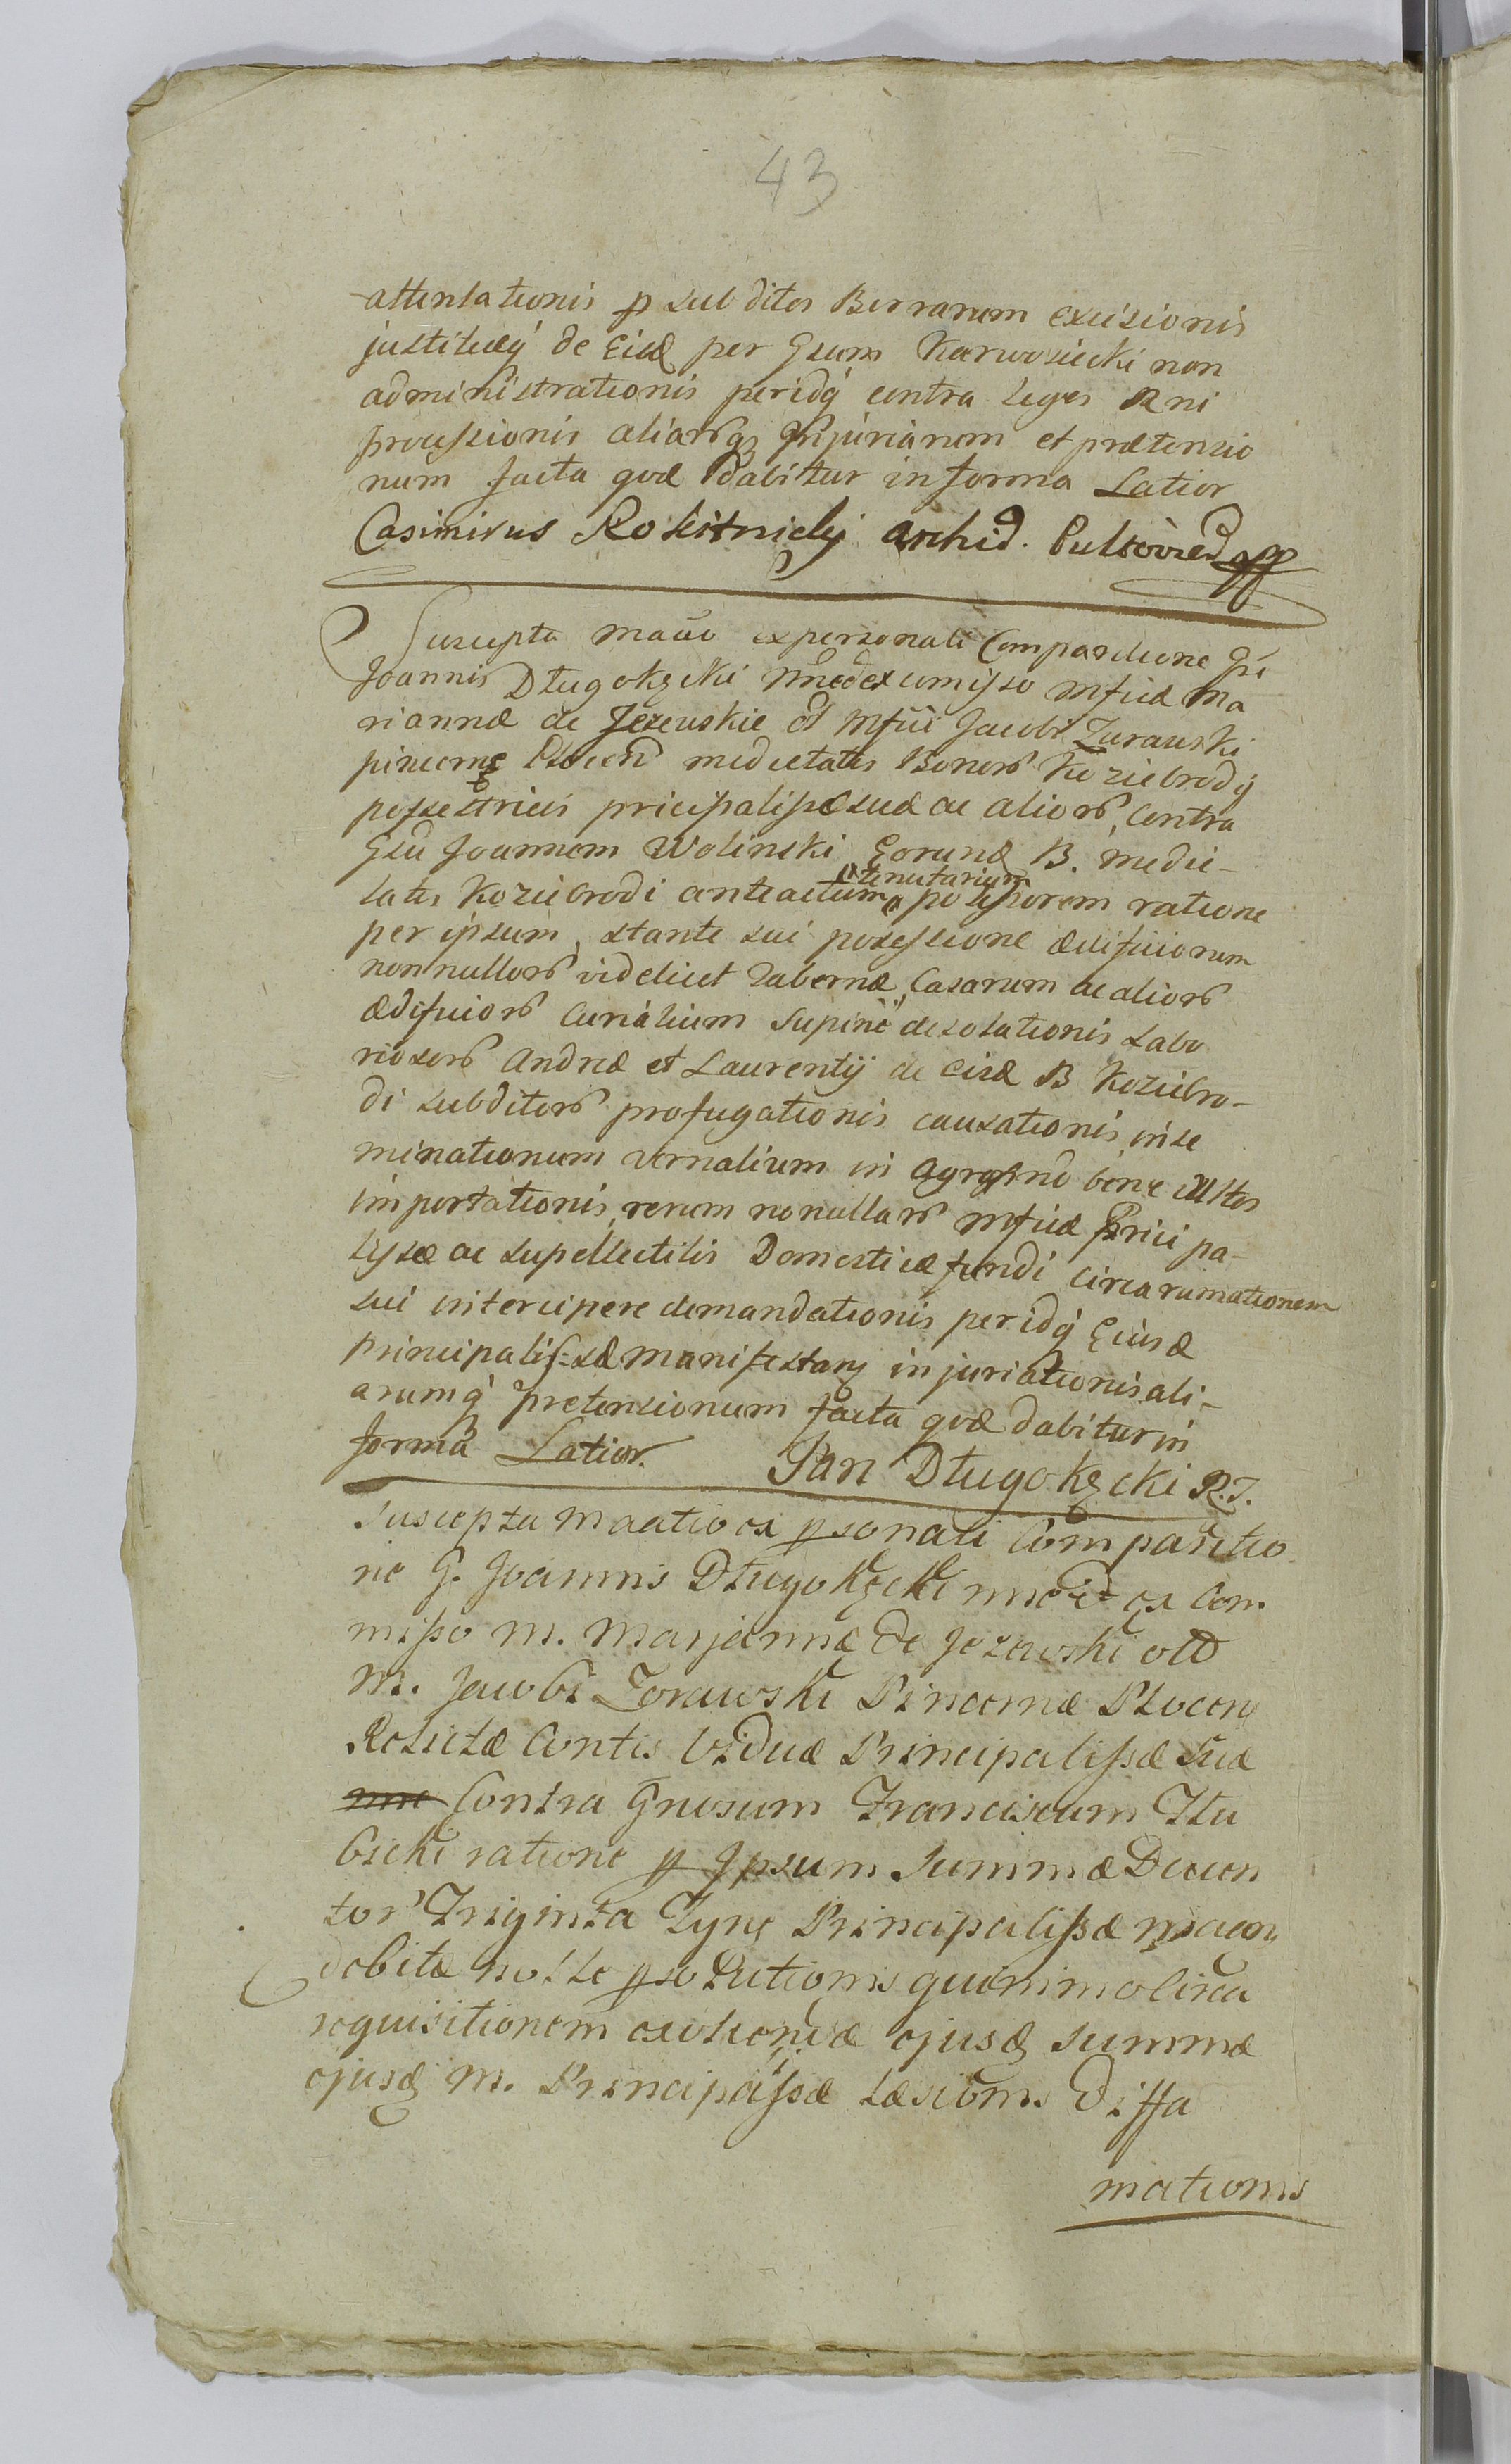 43
attentationis p subditos Borrarum excisionis
justitiæq́ de Eisd per Gsum Karwosiecki non
administrationis peridq́ contra leges Rni
processionis aliarūqꝫ Injuriarum et prætensio
num facta quæ dabitur in forma Latior
Casimirus Rokitnicky archid. Pultovien
Suscepta maõo ex personali Comparitione Gsi
Joannis Długokęcki nõe et ex comisso Mficæ Ma
riannæ de Jezewskie Mfici Jacobi Zurawski
pincernæ Plocen medietatis Bonorū Koziebrody
possestricis pricipalissæ suæ ac aliorū, Contra
Gsū Joannem Wolinski Eorund B. medie-
tatis Koziebrodi anteactum tenutarium possessorem ratione
per ipsum, stante sui possessione ædificiorum
nonnullorū videlicet Tabernæ, Casarum ac aliorū
ædificiorū Curialium Supine desolationis Labo
riosorū Andreæ et Laurentij de eisd B Koziebro-
di subditorū profugationis causationis, inse
minationum vernalium in agros bene cultos
importationis, rerum nonullarū Mficæ Prici pa-
lissæ ac supellectilis Domesticæ fundi circa rumationem
sui intercipere demandationis peridq́ Eiusd
Principalis-sæ Manifestan injuriationis ali-
arumq́ pretensionum facta quæ dabitur in
forma Latior. Jan Długokęcki R.T.
Suscepta Maatio ex psonali Comparitio
ne G. Joannis Długokęcki nnoē et ex Com
misso M. Marjannæ de Jezewski
M. Jacobi Zorawski Pincernæ Plocen
Relictæ Contis Viduæ Principalissæ Suæ
Contra Gnosum Franciscum Stu
bicki ratione p Ipsum Summæ Ducen
tor Triginta Tynf Principalissæ Maan
debitæ nolle psolutionis quinimo circa
requisitionem exolvendæ ejusd summæ
ejusd M. Principalissæ Læsionis Diffa
mationis